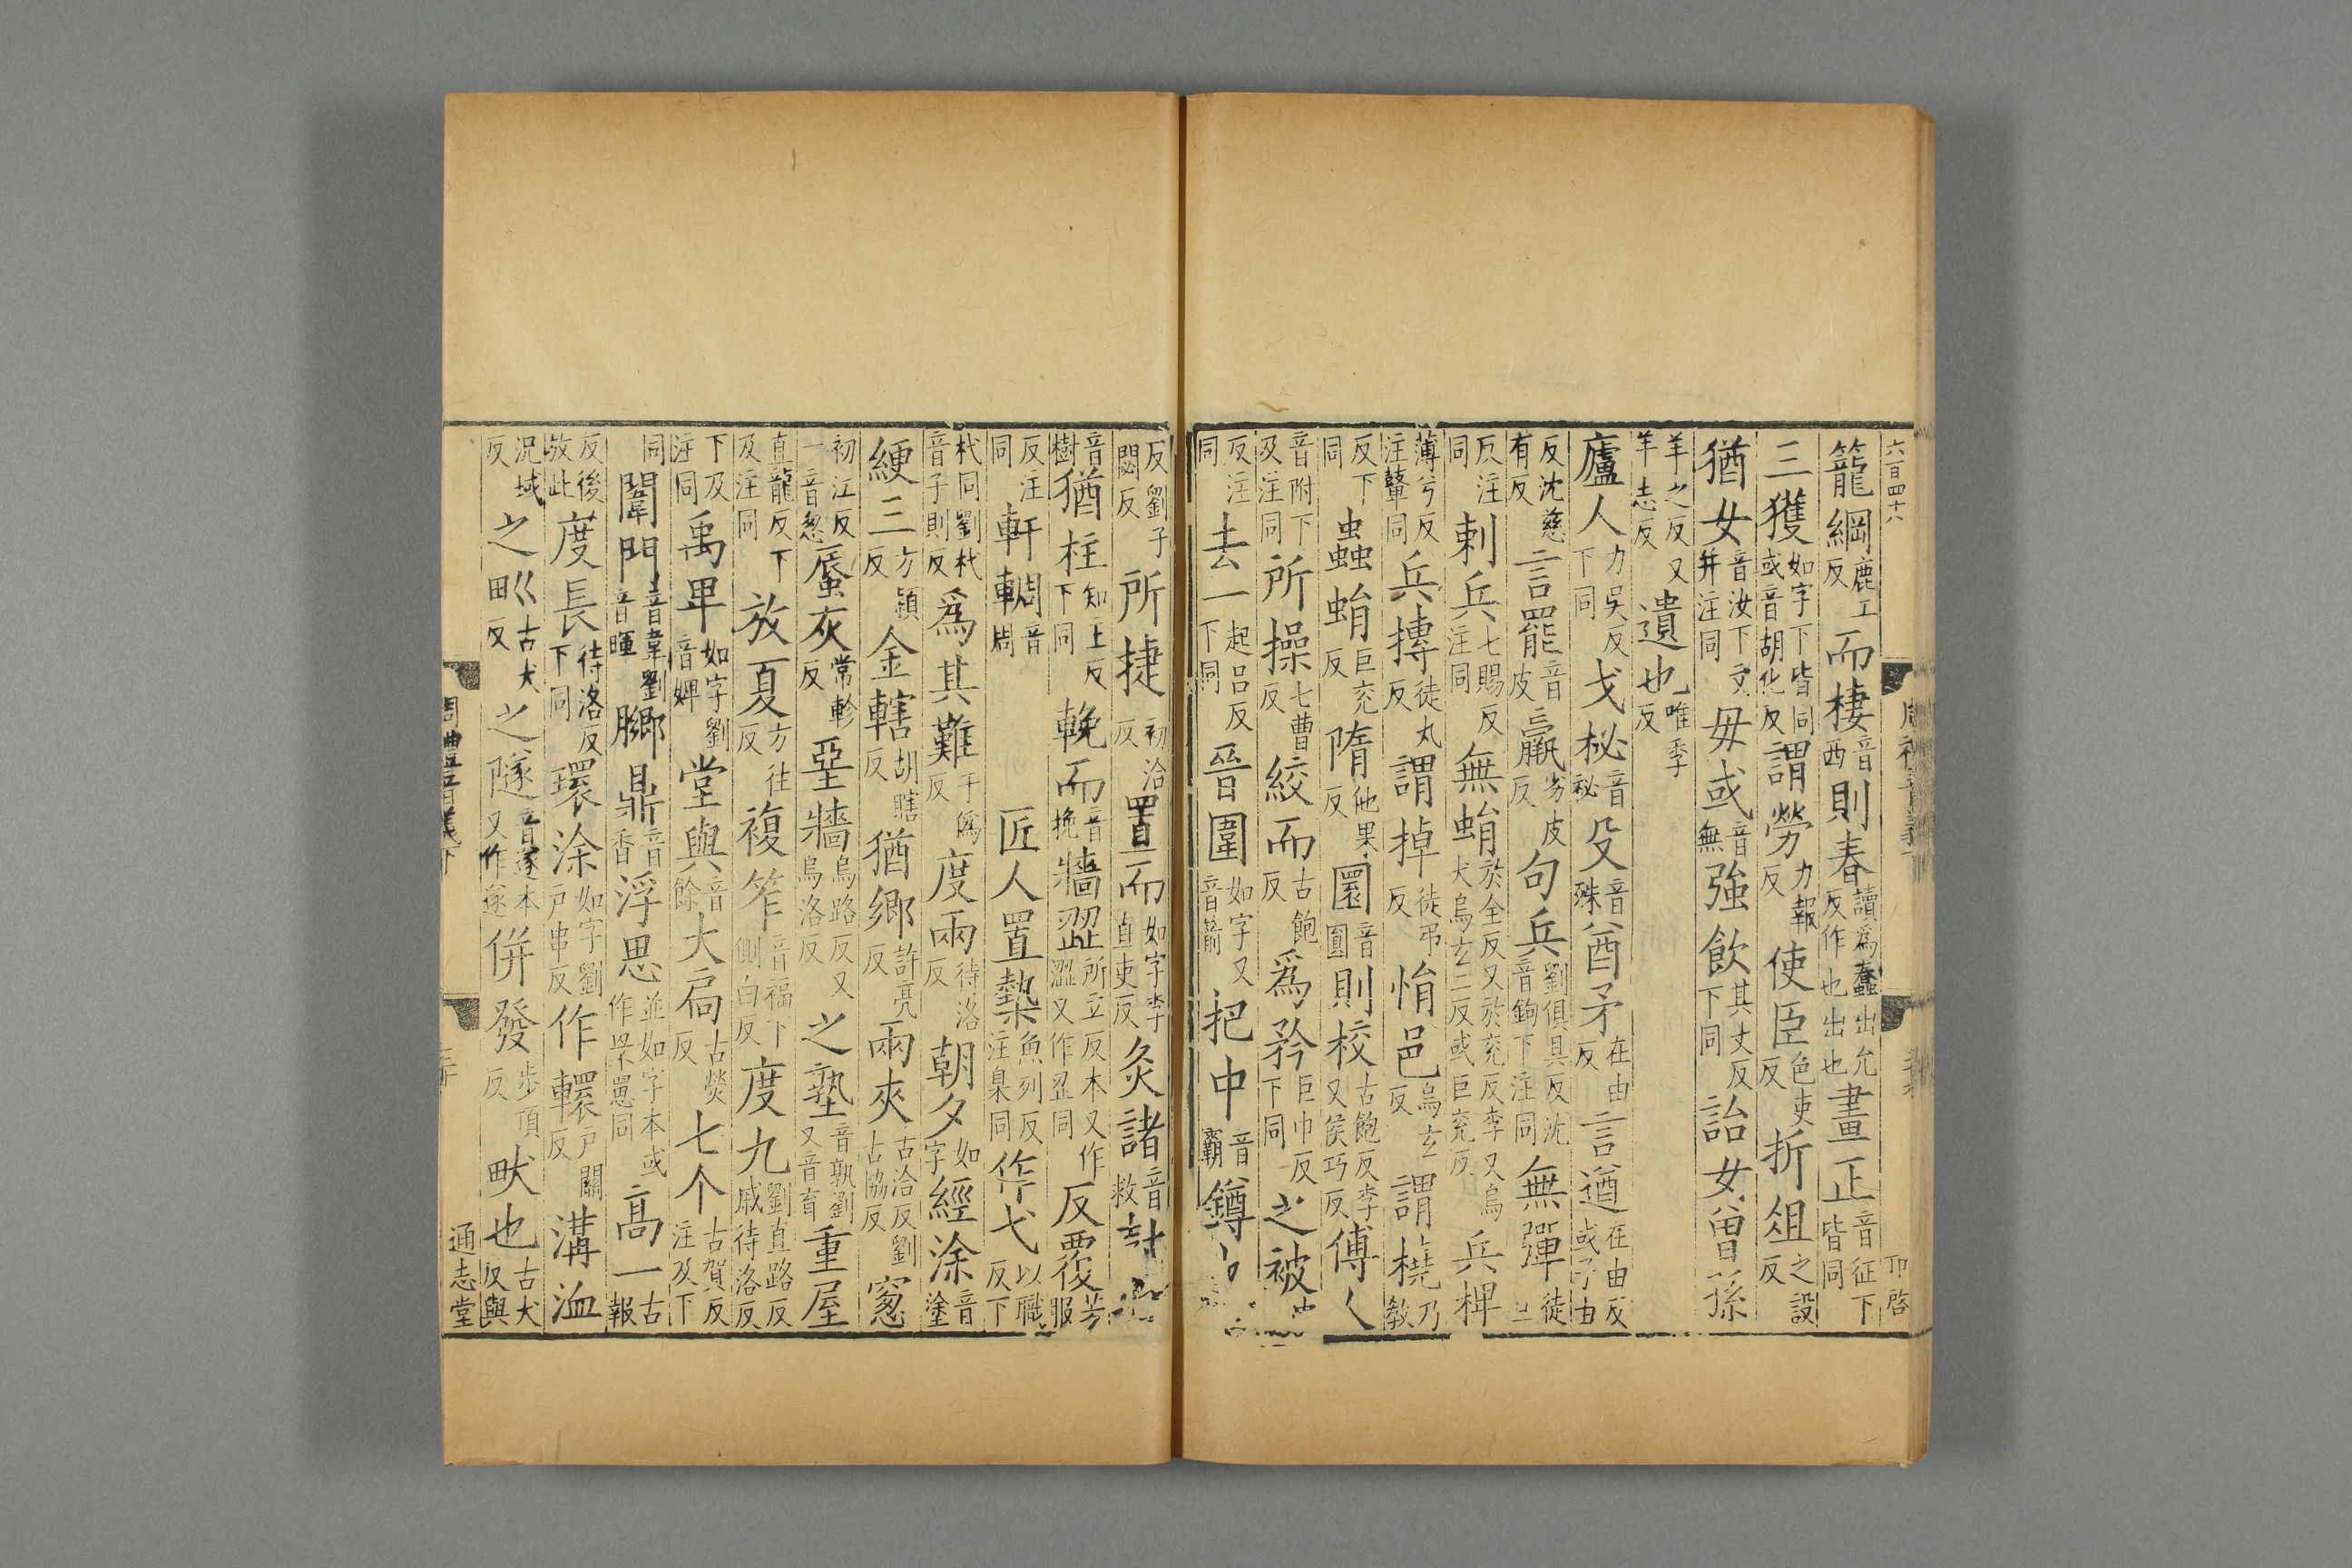 六百四十八
籠綱鹿工反而棲音西則春讀爲蠢出允反作也出也畫正音征下皆同
三獲如字下皆同或音胡化反謂勞力報反使臣色吏反折俎之設反
猶女音汝下文并注同毋或音無強飲其丈反下同詒女曾孫
羊之反又羊志反遺也唯季反
廬人力吳反下同戈柲音祕殳音殊酋矛在由反言遒在由反或子由
反沈慈有反言罷音皮羸劣皮反句兵劉俱具反沈音鉤下注同無彈徒
反注同刺兵七賜反注同無蜎於全反又於兗反李又烏犬烏玄二反或巨兗反兵椑
薄兮反注鼙同兵摶徒丸反謂掉徒弔反悁邑烏玄反謂橈乃敎
反下同蟲蜎巨兗反隋他果反圜音圓則校古飽反李又侯巧反傅
音附下及注同所操七曹反絞而古飽反爲矜巨巾反下同之被
反注同去一起呂反下同晉圍如字又音箭把中音霸鐏
反劉子閟反所捷初洽反置而如字李直吏反灸諸音救
音樹猶柱知主反下同輓而音挽牆澀所立反本又作澀又作歰同反覆芳服
反注同軒輖音周匠人置槷魚列反注臬同作弋以職反下
杙同劉杙音子則反爲其難于僞反度兩待洛反朝夕如字經涂音塗
綆三方潁反金轄胡瞎反猶鄉許亮反兩夾古洽反劉古協反窻
初江反一音怱蜃灰常軫反堊牆烏路反又烏洛反之塾音孰劉又音育重屋
直龍反下及注同放夏方往反複笮音福下側白反度九劉直路反戚待洛反
下及注同禹卑如字劉音婢堂與音餘大扃古熒反七个古賀反注及下
同闈門音韋劉音暉膷鼎音香浮思並如字本或作罘罳同高一古報
反後放此度長待洛反下同環涂如字劉戶串反作轘戶關反溝洫
況域反之𤰕古犬反之隧音遂本又作遂併發步頂反畎也古犬反與
通志堂